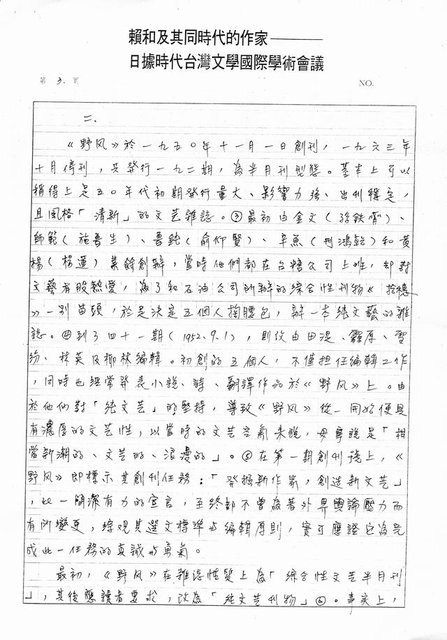 賴和及其同時代的作家———
日據時代台灣文學國際學術會議
第 3 頁 NO.
二、
《野風》於一九五〇年十一月一日創刊，一九六三年
十月停刊，共發行一九二期，為半月刊型態。基本上可以
稱得上是五〇年代初期發行量大、影響力強、出刊穩定，
且風格「清新」的文藝雜誌。③最初由金文（
師範（施魯生）、魯鈍（俞仲賢）、辛魚（ ）和黃
楊（楊蓮）業餘創辦，當時他們都在台糖公司上班，卻對
文藝有股熱愛，為了和石油公司所辦的綜合性刊物《拾穗
》一別苗頭，於是決定五個人掏腰包，辦一本純文藝的雜
誌。④到了四十一期（1952.9.1），則改由田湜、 、
、 及柳林編輯。初創的五個人，不僅担任編輯工作
，同時也經常發表小說、詩、翻譯作品於《野風》上。由
於他們對「純文藝」的堅持，導致《野風》從一開始便具
有濃厚的文藝性，以當時的文藝 來說，毋寧說是「相
當新潮的、文藝的、浪漫的」。⑤在第一期創刊號上，《
野風》即標示其創刊任務：「發掘新作家，創造新文藝」
，此一簡潔有力的宣言，至終都不曾為著外界輿論壓力而
有所變更，綜觀其選文標準與編輯原則，實可應證它為完
成此一任務的真誠與勇氣。
最初，《野風》在雜誌性質上為「綜合性文藝半月刊
」，其後應讀者要求，改為「純文藝刊物」⑥。事實上，